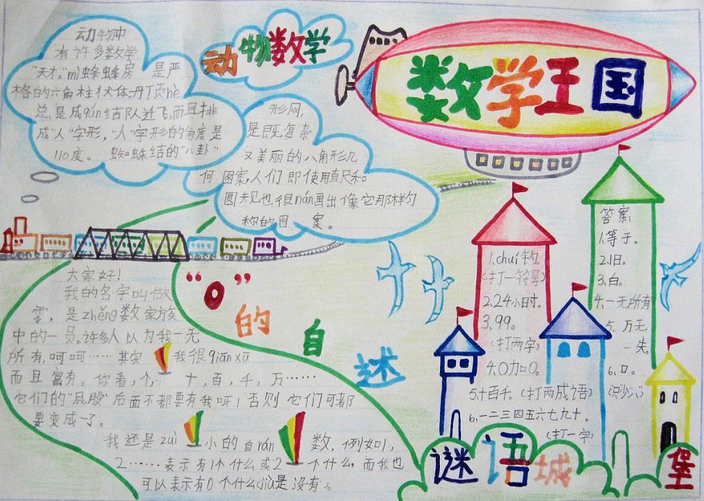 数学王国
动物数学
动物中
有许多数学
“天才”mì蜂蜂房 是严
格的六角柱状体丹顶hè
总是成qún结队迁飞而且排
成“人”字形，“人”字形的角度是
110度。 蜘蛛结的“八卦”
形网，
是既复杂
又美丽的八角形几
何图案，人们即使用直尺和
圆规也很nán画出像它那样匀
称的图案。
“0”的自述
大家好！
我的名字叫做
零，是zhěng数家族
中的一员。许多人以为我一无
所有，呵呵……其实 我很qiān xū
而且富有。你看，个，十，百，千，万……
它们的“屁股”后面不都要有我呀！否则 它们可都
要变成了一。
我还是zuì小的自rán数，例如1，
2……表示有1个什么或2个什么，而我也
可以表示有0个什么jiù是没有。
1.chuí钓
（打一符号）
2.24小时。
3.99。
（打两字）
4.0加0。
5.十百千。（打两成语）
6.一二三四五六七九十。
（打一字）
答案：
1.等于。
2.旧。
3.白。
4.一无所有
5.万无
一失
6.口。
（只少八）
谜语城堡